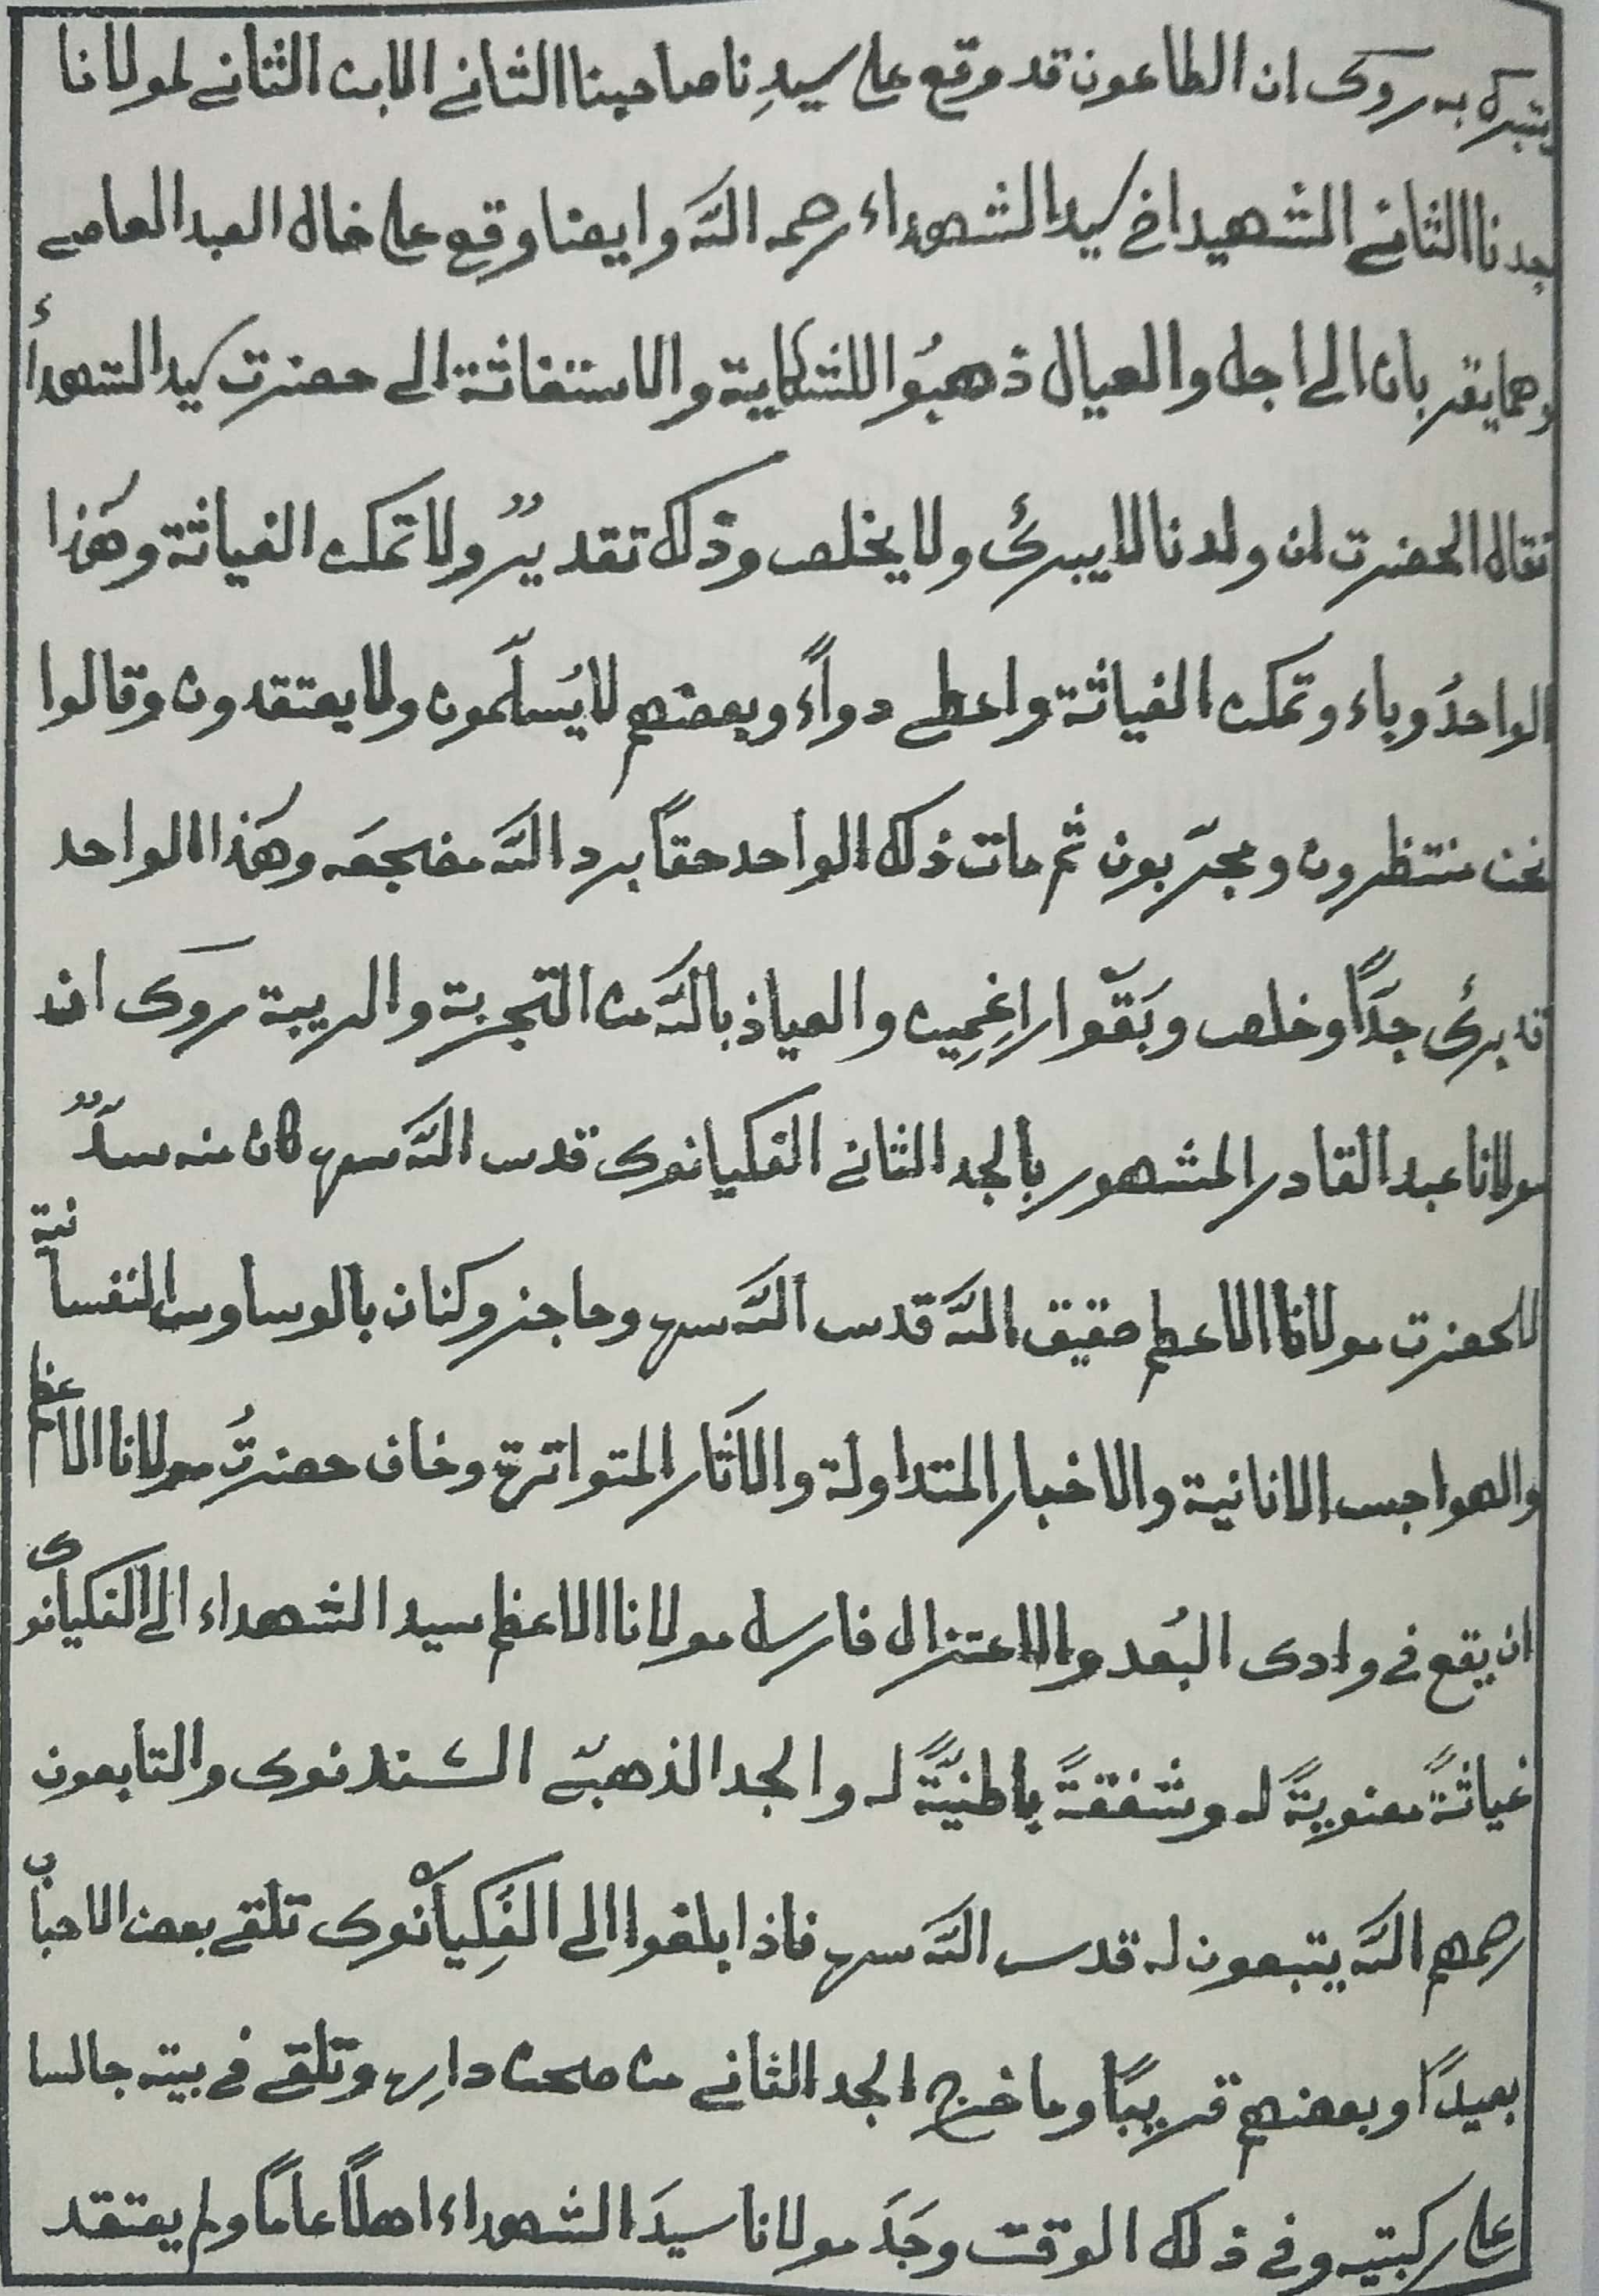 يتبرك به روى ان الطاعون قد وقع على سيدِنا صاحبنا الثاني الابن الثاني لمولانا
جدنا الثاني الشهيد اخ سيد الشهداء رحمه اللّه وايضا وقع على خال العبد العاصي
وهما يقربان الى اجل والعيال ذهبُوا للشكاية والاستغاثة الى حضرت سيد الشهدأء
فقال الحضرت ان ولدنا لا يبرئ ولا يخلص وذلك تقديرٌ ولا تمكن الغياثة وهَذا
الواحدُ وباء وتمكن الغياثة واعطى دوأً وبعضهم لا يُسلّمون ولا يعتقدون وقالوا
نحن منتظرون ومجرّبون ثم مات ذلك الواحد حقاً برد اللّه مضجعَه وهَذا الواحد
قد برئ جدًّا وخلص وبَقّوا راغِمِين والعياذ باللّه من التجربة والريبة روى ان
مولانا عبد القادر المشهور بالجد الثاني الفكيانوى قدس اللّه سره كان منه سدٌّ
للحضرت مولانا الاعظم حقيق اللّه قدس اللّه سره وحاجز وكنان بالوساوس النفسانية
والهواجس الانانية والاخبار المتداولة والاثار المتواترة وخاف حضرتُ مولانا الاعظم
ان يقع في وادى البُعد والاعتزال فارسل مولانا الاعظم سيد الشهداء الى الفكيانوى
غياثةً معنويةً له وشفقةً باطنيّةً له والجد الذهبيّ الشندنوى والتابعون
رحمهم اللّه يتبعون له قدس اللّه سره فاذا بلغوا الى الفَكِيانْوى تلقى بعض الاحباب
بعيدًا وبعضهم قريبًا وما خرج الجد الثاني من صحن دارِه وتلقى في بيته جالسا
على ركبتيه وفي ذلك الوقت وجَدَ مولانا سيدَ الشهداء اهلاً عامًا ولم يعتقد